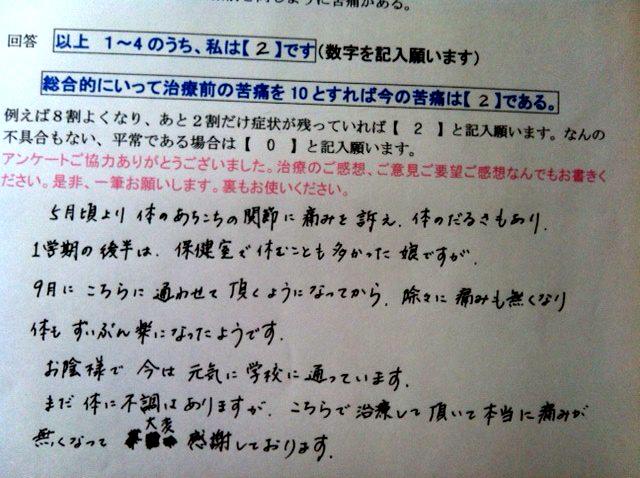 同じように苦痛がある。
回答 以上 1～4のうち、私は【 2 】です(数字を記入願います)
総合的にいって治療前の苦痛を10とすれば今の苦痛は【 2 】である。
例えば8割よくなり、あと2割だけ症状が残っていれば【 2 】と記入願います。なんの
不具合もない、平常である場合は【 0 】と記入願います。
アンケートご協力ありがとうございました。治療のご感想、ご意見ご要望ご感想なんでもお書きく
ださい。是非、一筆お願いします。裏もお使いください。
5月頃より 体のあちこちの関節に痛みを訴え、体のだるさもあり、
1学期の後半は、保健室で休むことも多かった娘ですが、
9月に こちらに通わせて頂くようになってから、除々に痛みも無くなり
体も ずいぶん楽になったようです。
お陰様で 今は 元気に学校に通っています。
まだ 体に不調はありますが、こちらで治療して頂いて本当に痛みが
無くなって 大変 感謝しております。